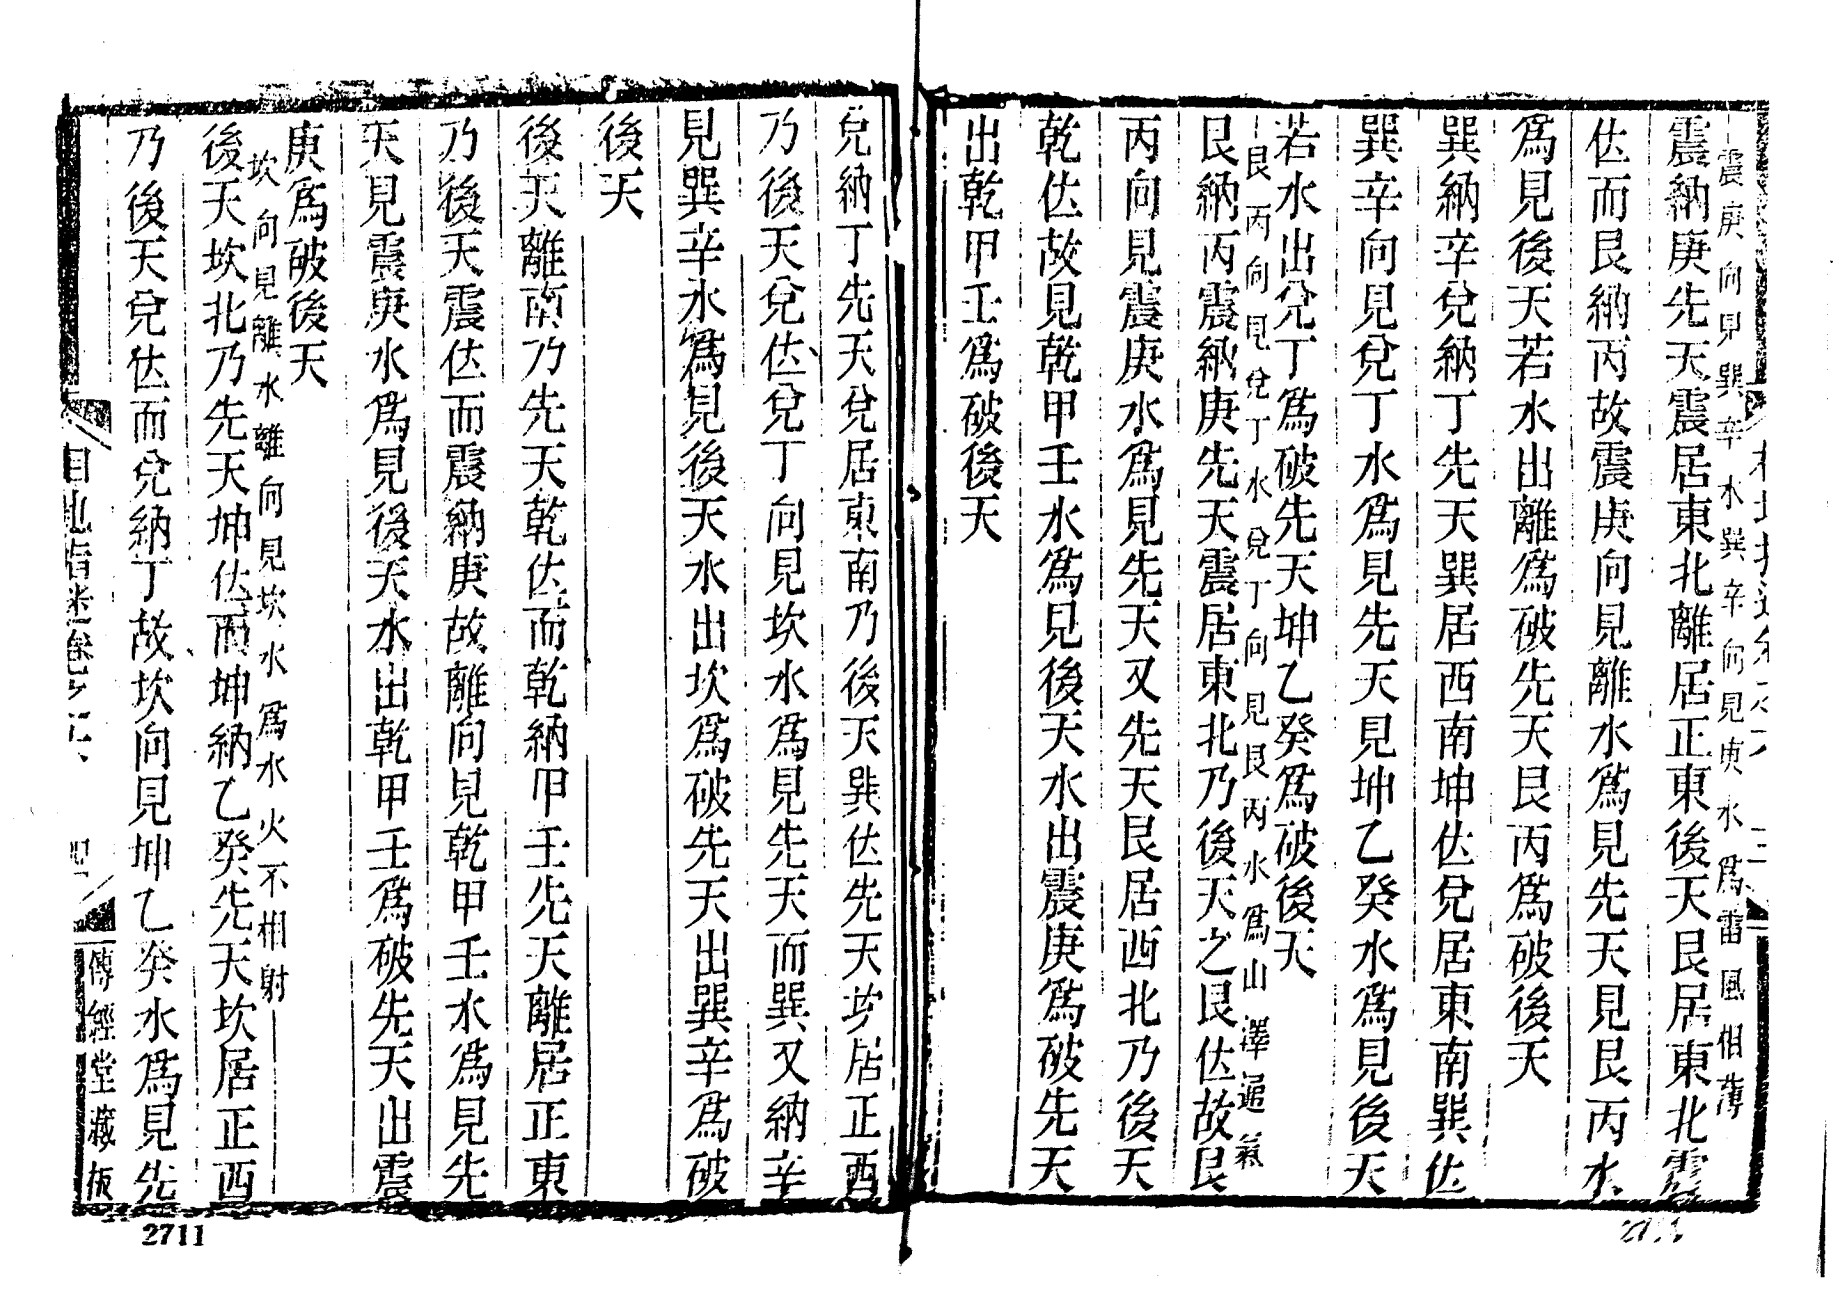 震庚向見巽辛水巽辛向見庚水爲雷風相薄
震納庚先天震居東北離居正東後天艮居東北震
位而艮納丙故震庚向見離水爲見先天見艮丙水
爲見後天若水出離爲破先天艮丙爲破後天
巽納辛兌納丁先天巽居西南坤位兌居東南巽位
巽辛向見兌丁水爲見先天見坤乙癸水爲見後天
若水出兌丁爲破先天坤乙癸爲破後天
艮丙向見兌丁水兌丁向見艮丙水爲山澤通氣
艮納丙震納庚先天震居東北乃後天之艮位故艮
丙向見震庚水爲見先天又先天艮居西北乃後天
乾位故見乾甲壬水爲見後天水出震庚爲破先天
出乾甲壬爲破後天
兌納丁先天兌居東南乃後天巽位先天坎居正酉
乃後天兌位兌丁向見坎水爲見先天而巽又納辛
見巽辛水爲見後天水出坎爲破先天出巽辛爲破
後天
後天離南乃先天乾位而乾納甲壬先天離居正東
乃後天震位而震納庚故離向見乾甲壬水爲見先
天見震庚水爲見後天水出乾甲壬爲破先天出震
庚爲破後天
坎向見離水離向見坎水爲水火不相射
後天坎北乃先天坤位而坤納乙癸先天坎居正酉
乃後天兌位而兌納丁故坎向見坤乙癸水爲見先
目也指迷卷之六 四
傳經堂藏板
2711